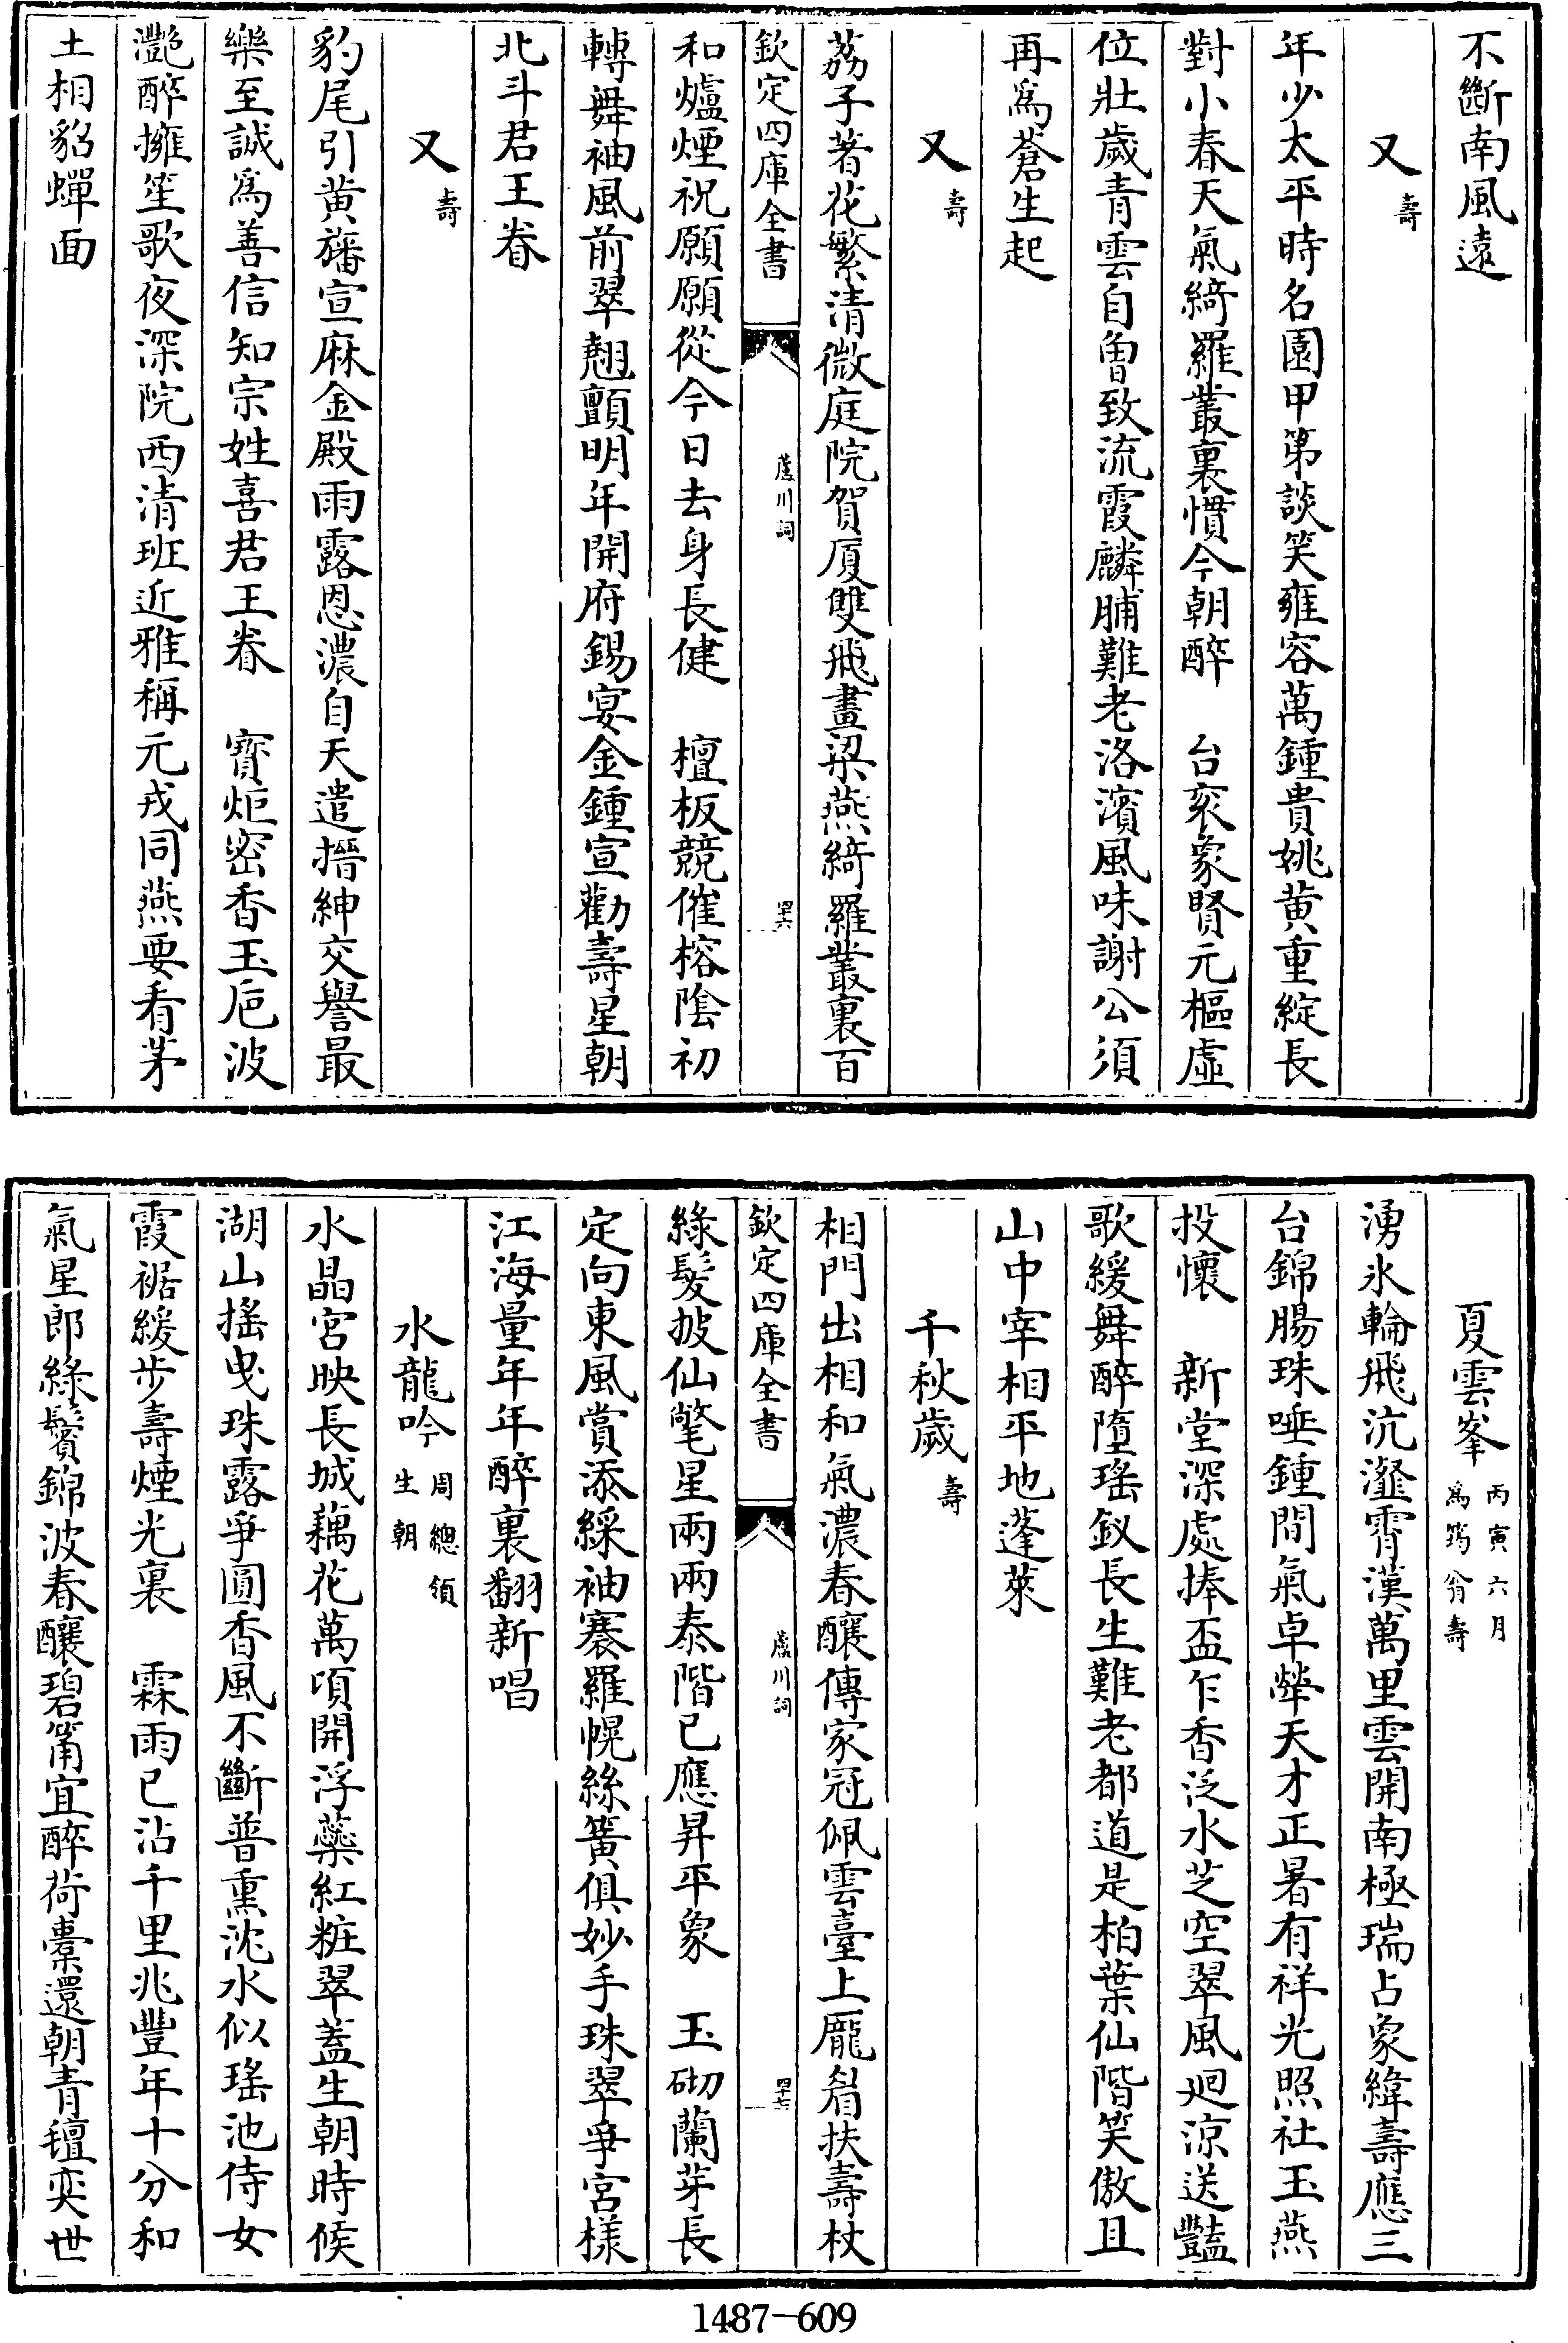 不斷南風遠
又 壽
年少太平時名園甲第談笑雍容萬鍾貴姚黃重綻長
對小春天氣綺羅叢裏慣今朝醉 台衮象賢元樞虛
位壯歲青雲自曾致流霞麟脯難老洛濱風味謝公須
再為蒼生起
又 壽
荔子著花繁清微庭院賀厦雙飛畫梁燕綺羅叢裏百
欽定四庫全書 蘆川詞 四十六
和爐煙祝願願從今日去身長健 檀板競催榕陰初
轉舞袖風前翠翹顫明年開府錫宴金鍾宣勸壽星朝
北斗君王眷
又 壽
豹尾引黃旛宣麻金殿雨露恩濃自天遣搢紳交譽最
樂至誠為善信知宗姓喜君王眷 寶炬密香玉巵波
灧醉擁笙歌夜深院西清班近雅稱元戎同燕要看茅
土相貂蟬面
夏雲峯 丙寅六月為筠翁壽
湧氷輪飛沆瀣霄漢萬里雲開南極瑞占象緯壽應三
台錦腸珠唾鍾間氣卓犖天才正暑有祥光照社玉燕
投懷 新堂深處捧盃乍香泛水芝空翠風廻涼送豔
歌緩舞醉墮瑤釵長生難老都道是柏葉仙階笑傲且
山中宰相平地蓬萊
千秋歲 壽
相門出相和氣濃春釀傳家冠佩雲臺上龐眉扶壽杖
欽定四庫全書 蘆川詞 四十七
綠髮披仙氅星兩兩泰階已應昇平象 玉砌蘭芽長
定向東風賞添綵袖褰羅幌絲簧俱妙手珠翠爭宮樣
江海量年年醉裏翻新唱
水龍吟 周總領生朝
水晶宮映長城藕花萬頃開浮蘂紅粧翠蓋生朝時候
湖山搖曳珠露爭圓香風不斷普熏沈水似瑤池侍女
霞裾緩步壽煙光裏 霖雨已沾千里兆豐年十分和
氣星郎綠鬢錦波春釀碧筩宜醉荷橐還朝青氊奕世
1487—609